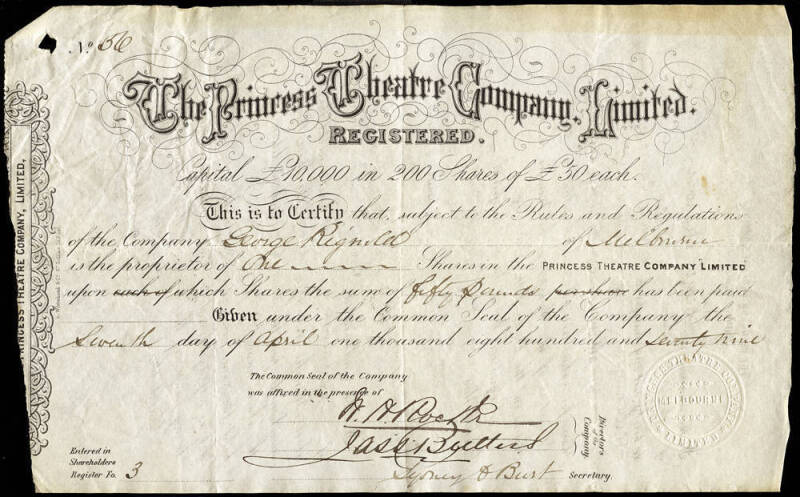 No. 56
The Princess Theatre Company, Limited.
REGISTERED.
Capital £10,000 in 200 Shares of £50 each.
This is to Certify that, subject to the Rules and Regulations
of the Company George Rignold of Melbourne
is the proprietor of One Shares in the PRINCESS THEATRE COMPANY "LIMITED"
upon each of which Shares the sum of fifty Pounds per share has been paid
Given under the Common Seal of the Company the
Seventh day of April one thousand eight hundred and seventy nine
The Common Seal of the Company
was affixed in the presence of
Directors of the Company.
Secretary.
Entered in
Shareholders
Register Fo. 3
PRINCESS THEATRE COMPANY, LIMITED,
PRINCESS THEATRE COMPANY, LIMITED,
PRINCESS THEATRE COMPANY
MELBOURNE
LIMITED